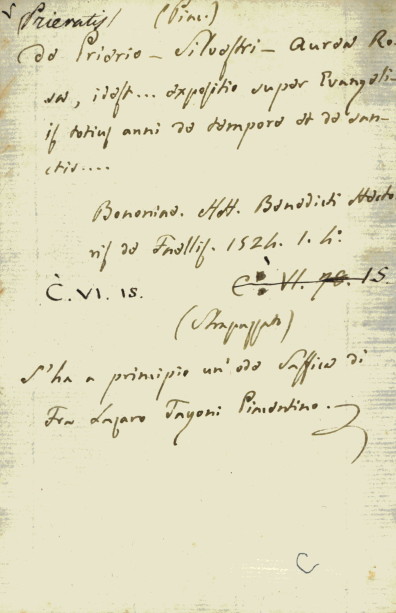 Prieratis (Piem.)
De Prierio – Silvestri – Aurea Ro-
sa, idest... expositio super Evangeli-
is totius anni de tempore et de san-
ctis....
Bononiae. Aere Benedicti Hecto
ris de Faellis. 1524. 1. 4°
C. VI. 15. C. VI. 70. 15
(Strapazzato)
S'ha a principio un' ode saffica di
Fra Lazaro Piemontino.